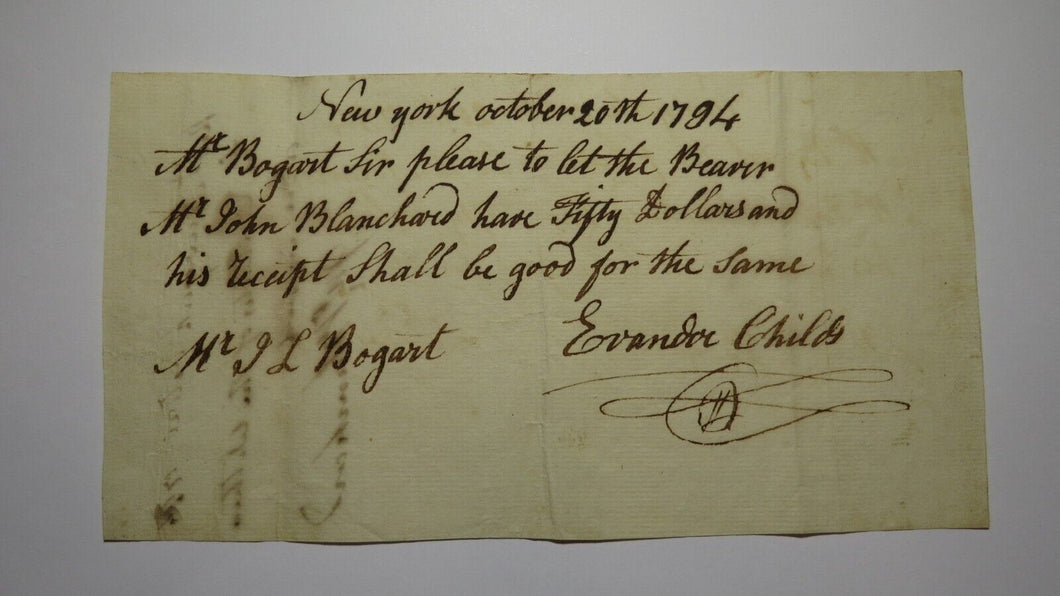 New york october 20th 1794
Mr Bogart Sir please to let the Bearer
Mr John Blanchard have Fifty Dollars and
his receipt Shall be good for the Same
Mr J L Bogart
Evander Childs